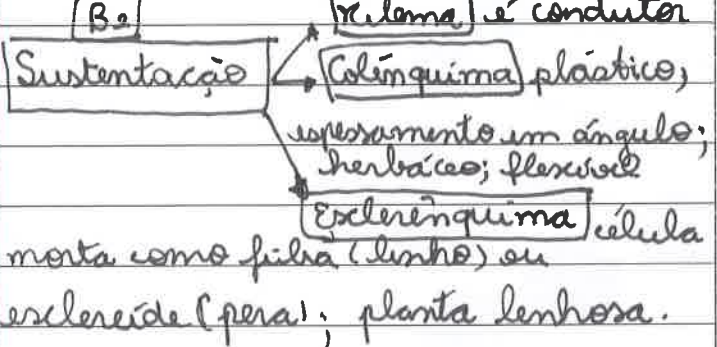 B2
Xilema é condutor
Sustentação Colênquima plástico;
espessamento em ângulo;
herbáceo; flexível
Esclerênquima célula
morta como fibra (linho) ou
esclereíde (pera); planta lenhosa.